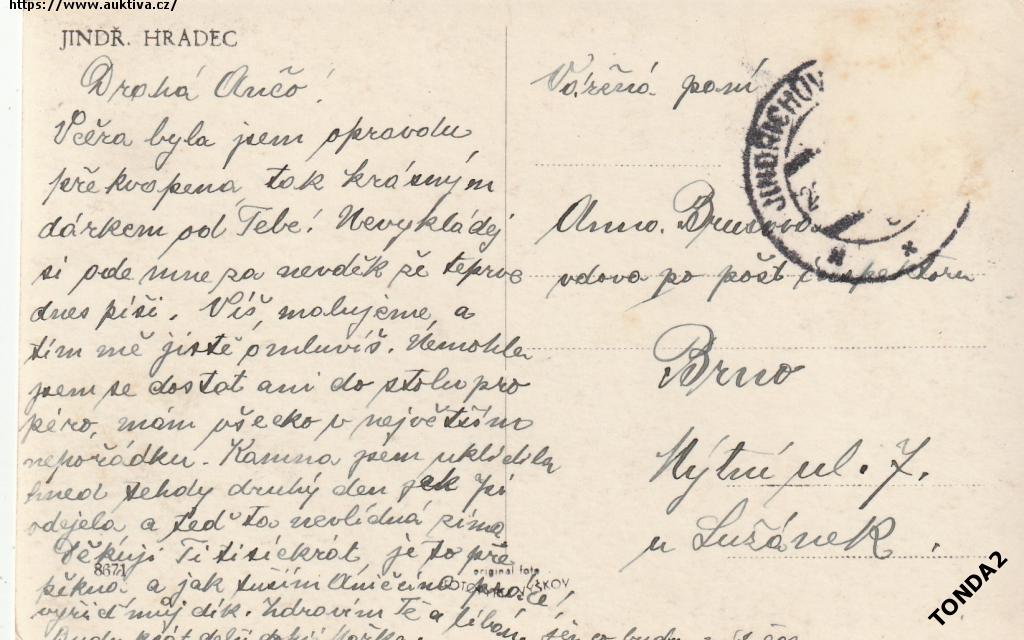 https://www.auktiva.cz/
JINDŘ. HRADEC
Drahá Ančo!
Včera byla jsem opravdu
překvapena tak krásným
dárkem od Tebe! Nevykládej
si ode mne za nevděk že teprve
dnes píši. Víš, malujeme, a
tím mě jistě omluvíš. Nemohla
jsem se dostat ani do stolu pro
péro, mám všecko v největším
nepořádku. Kamna jsem uklidila
hned tehdy druhý den jak jsi
odjela a teď ta nevlídná zima
Děkuji Ti tisíckrát je to pře
pěkné a jak tuším Aniččina práce!
vyřiď můj dík. Zdravím Tě a líbám
8671
original foto
FOTO VYŠKOV
Vážená paní
Anna Brusová
vdova po pošt. inspektoru
Brno
Mýtní ul. 7.
u Lužánek.
JINDŘICHŮV
TONDA2